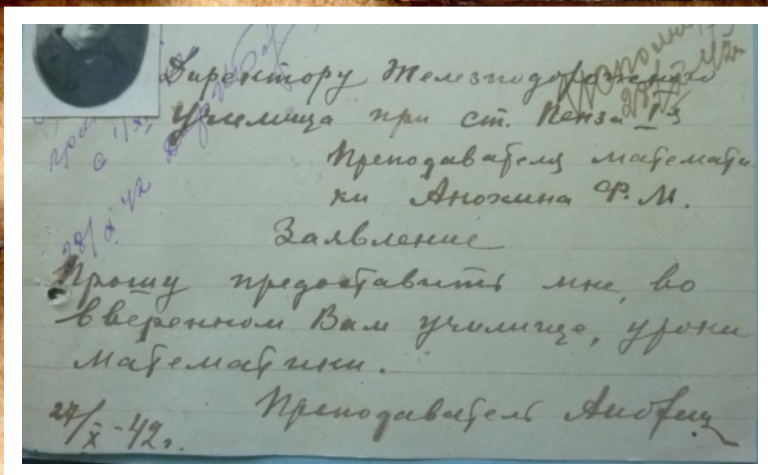 Директору Железнодорожного
Училища при ст. Пенза I-я
Преподавателя математи-
ки Анохина Ф. М.
Заявление
Прошу предоставить мне, во
вверенном Вам училище, уроки
математики.
Преподаватель
27/X-42г.
28/X 42
с 1/XI
28/X 42г.